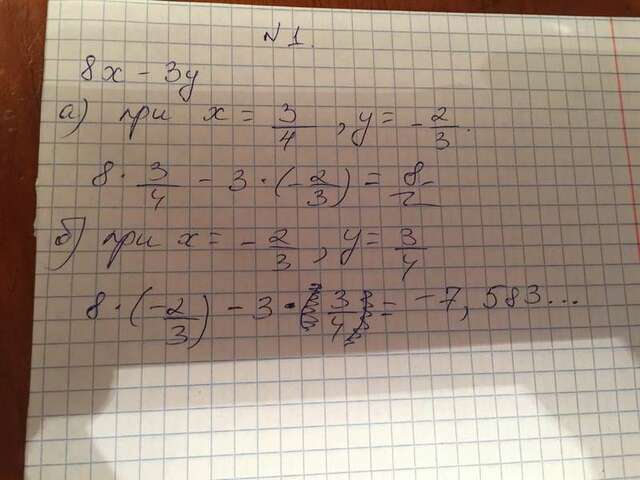 N 1.
8x - 3y
а) при x = 3/4, y = -2/3.
8 · 3/4 - 3 · (-2/3) = 8
б) при x = -2/3, y = 3/4
8 · (-2/3) - 3 · 3/4 = -7,583...